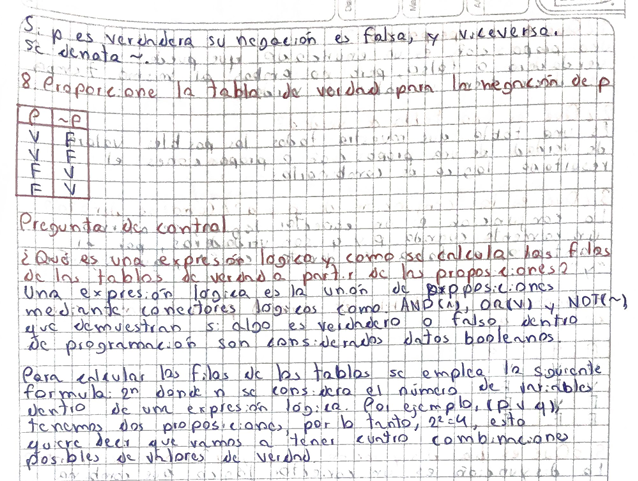 Si p es verdadera su negación es falsa, y viceversa.
Se denota ~.
8. Proporcione la tabla de verdad para la negación de p
P ~P
V F
V F
F V
F V
Pregunta de control
¿Qué es una expresión lógica y como se calcula las filas
de las tablas de verdad a partir de las proposiciones?
Una expresión lógica es la unión de proposiciones
mediante conectores lógicos como AND(∧), OR(V) y NOT(~)
que demuestran si algo es verdadero o falso, dentro
de programación son considerados datos booleanos.
Para calcular las filas de las tablas se emplea la siguiente
formula: 2n donde n se considera el número de variables
dentro de una expresión lógica. Por ejemplo, (p v q),
tenemos dos proposiciones, por lo tanto, 2²=4, esto
quiere decir que vamos a tener cuatro combinaciones
posibles de valores de verdad.